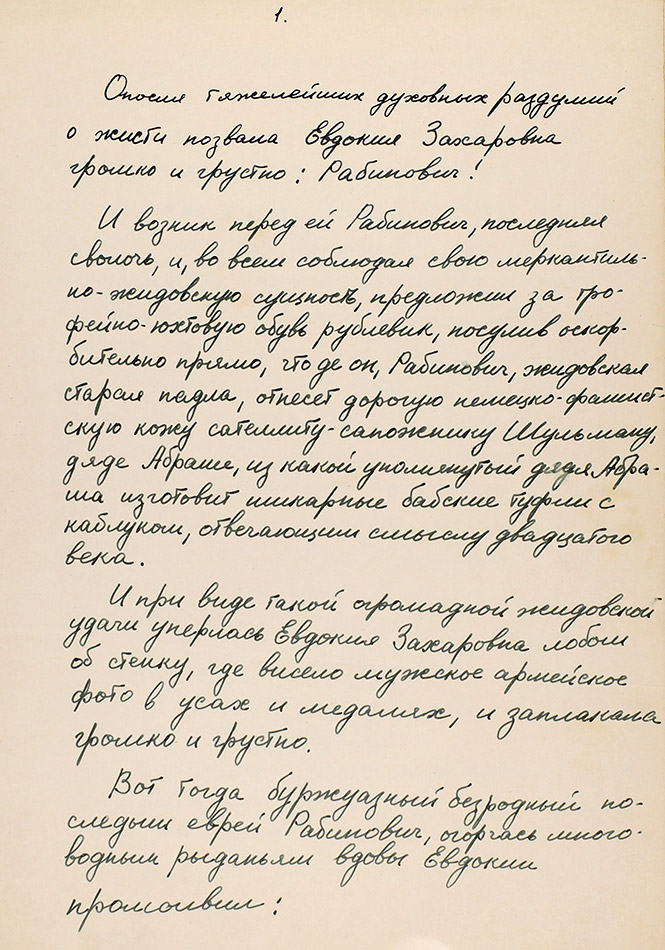 1.
Опосля тяжелейших духовных раздумий
о жисти позвала Евдокия Захаровна
громко и грустно: Рабинович!
И возник перед ей Рабинович, последняя
сволочь, и, во всем соблюдая свою меркантиль-
но-жидовскую сущность, предложил за тро-
фейно-юхтовую обувь рублевик, посулив оскор-
бительно прямо, что де он, Рабинович, жидовская
старая падла, отнесет дорогую немецко-фашист-
скую кожу сателлиту-сапожнику Шульману,
дяде Абраше, из какой упомянутый дядя Абра-
ша изготовит шикарные бабские туфли с
каблуком, отвечающим смыслу двадцатого
века.
И при виде такой огромадной жидовской
удачи уперлась Евдокия Захаровна лобом
об стенку, где висело мужское армейское
фото в усах и медалях, и заплакала
громко и грустно.
Вот тогда буржуазный безродный по-
следыш еврей Рабинович, огорчась много-
водным рыданьям вдовы Евдокии
промолвил: